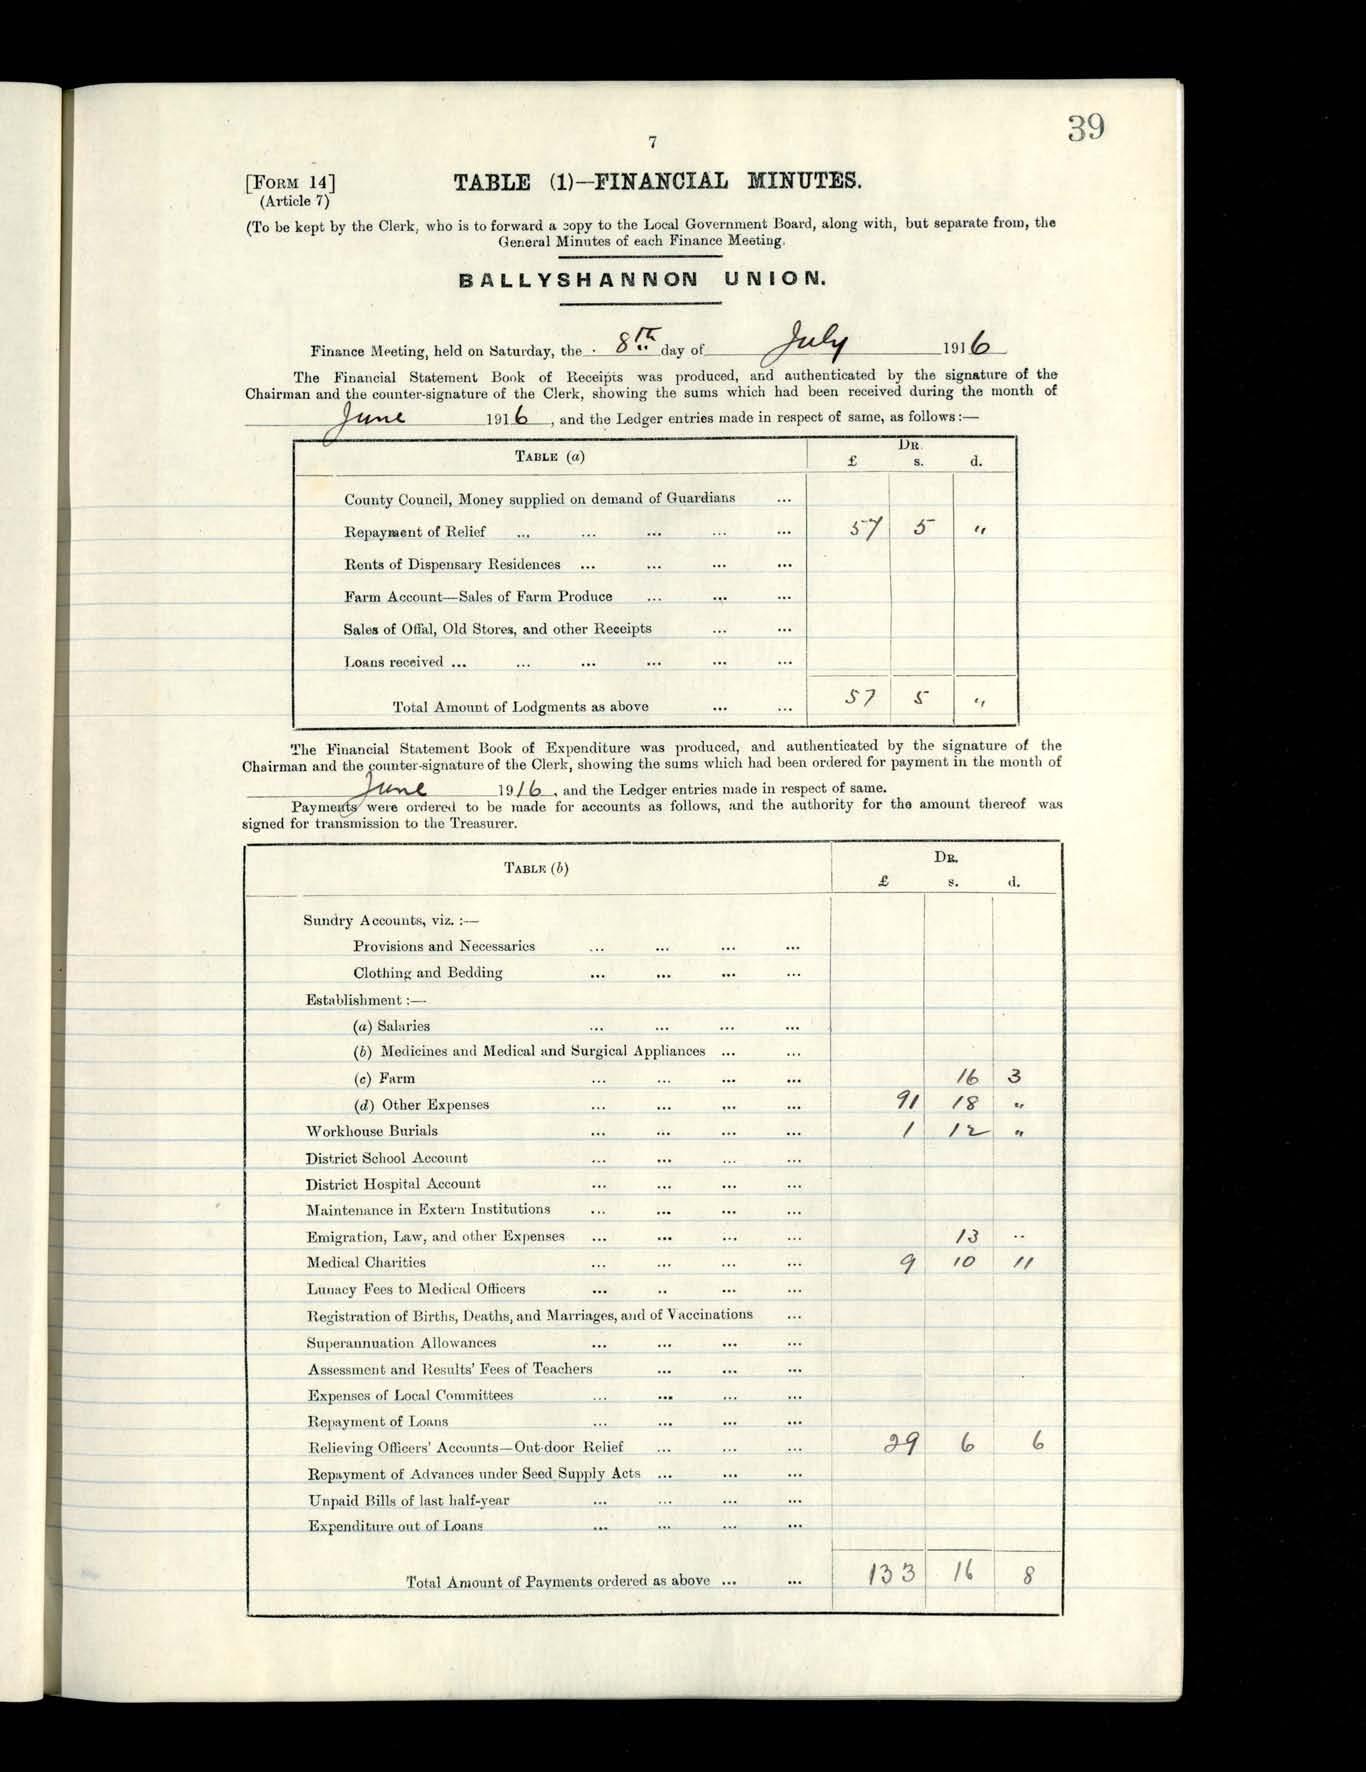 39
7
[FORM 14]
(Article 7)
TABLE (1)—FINANCIAL MINUTES.
(To be kept by the Clerk, who is to forward a copy to the Local Government Board, along with, but separate from, the
General Minutes of each Finance Meeting.
BALLYSHANNON UNION.
Finance Meeting, held on Saturday, the 8th day of July 1916
The Financial Statement Book of Receipts was produced, and authenticated by the signature of the
Chairman and the counter-signature of the Clerk, showing the sums which had been received during the month of
June 1916, and the Ledger entries made in respect of same, as follows:—
TABLE (a) DR.
£ s. d.
County Council, Money supplied on demand of Guardians ...
Repayment of Relief ... ... ... ... ... 57 5 "
Rents of Dispensary Residences ... ... ... ...
Farm Account—Sales of Farm Produce ... ... ...
Sales of Offal, Old Stores, and other Receipts ... ...
Loans received ... ... ... ... ... ...
Total Amount of Lodgments as above ... ... 57 5 "
The Financial Statement Book of Expenditure was produced, and authenticated by the signature of the
Chairman and the counter-signature of the Clerk, showing the sums which had been ordered for payment in the month of
June 1916, and the Ledger entries made in respect of same.
Payments were ordered to be made for accounts as follows, and the authority for the amount thereof was
signed for transmission to the Treasurer.
TABLE (b) DR.
£ s. d.
Sundry Accounts, viz. :—
Provisions and Necessaries ... ... ... ...
Clothing and Bedding ... ... ... ...
Establishment :—
(a) Salaries ... ... ... ...
(b) Medicines and Medical and Surgical Appliances ... ...
(c) Farm ... ... ... ... 16 3
(d) Other Expenses ... ... ... ... 91 18 "
Workhouse Burials ... ... ... ... 1 12 "
District School Account ... ... ... ...
District Hospital Account ... ... ... ...
Maintenance in Extern Institutions ... ... ... ...
Emigration, Law, and other Expenses ... ... ... ... 13 "
Medical Charities ... ... ... ... 9 10 11
Lunacy Fees to Medical Officers ... .. ... ...
Registration of Births, Deaths, and Marriages, and of Vaccinations ...
Superannuation Allowances ... ... ... ...
Assessment and Results' Fees of Teachers ... ... ...
Expenses of Local Committees ... ... ... ...
Repayment of Loans ... ... ... ...
Relieving Officers' Accounts—Out-door Relief ... ... ... 29 6 6
Repayment of Advances under Seed Supply Acts ... ... ...
Unpaid Bills of last half-year ... ... ... ...
Expenditure out of Loans ... ... ... ...
Total Amount of Payments ordered as above ... ... 133 16 8